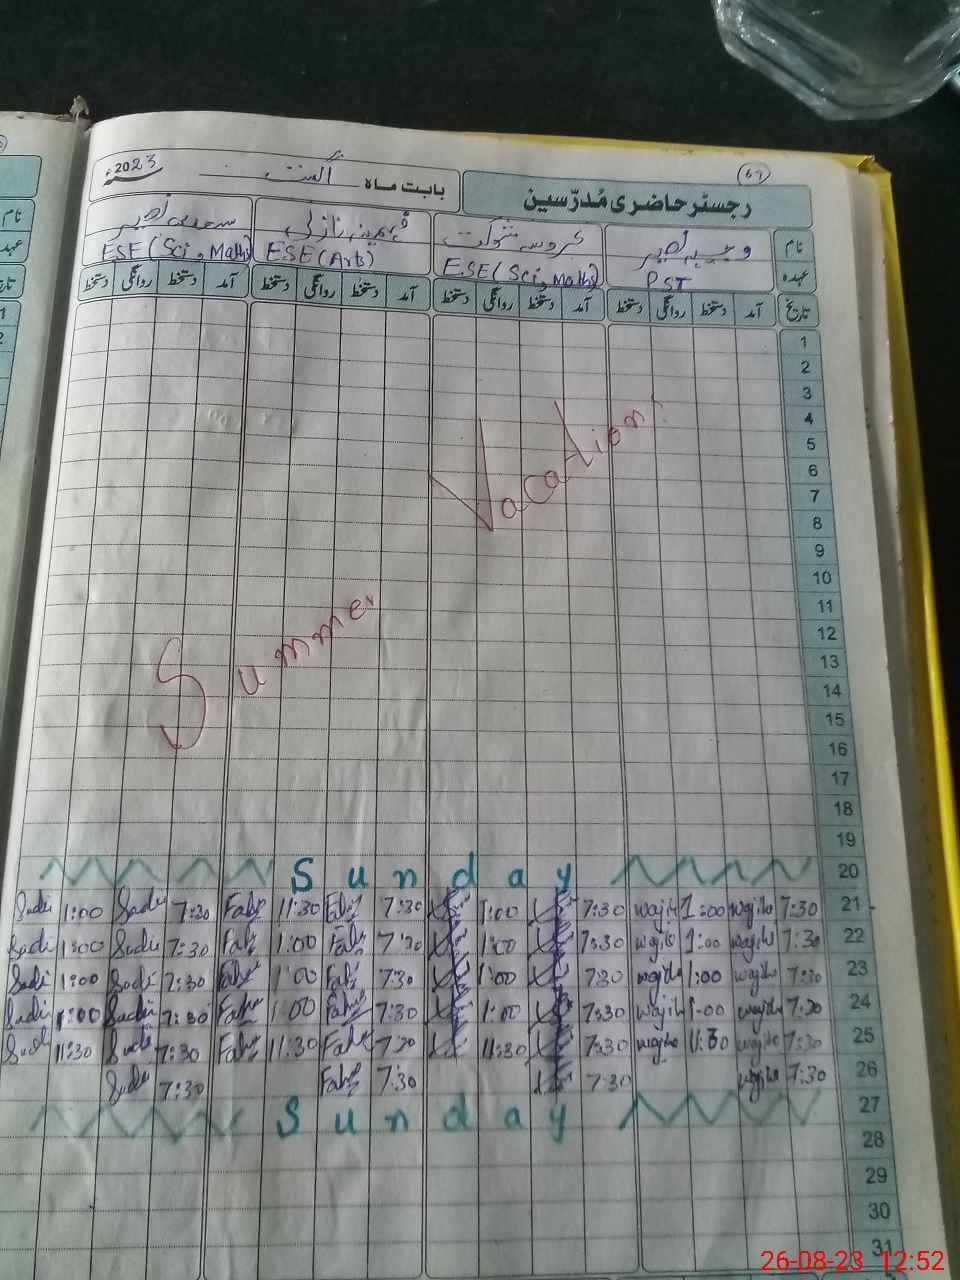 67
رجسٹر حاضری مُدرّسین
بابت ماہ اگست 2023ء
نام وجیہہ نصیر عروسہ شوکت فہمینہ نازلی سعدیہ نصیر
عہدہ PST ESE (Sci, Maths) ESE (Arts) ESE (Sci, Maths)
تاریخ آمد دستخط روانگی دستخط آمد دستخط روانگی دستخط آمد دستخط روانگی دستخط آمد دستخط روانگی دستخط
1
2
3
4
5
6
7
8
9
10
11
12
13
14
15
16
17
18
19
Summer Vacations
Sunday 20
Sadi 1:00 Sadi 7:30 Fahm 11:30 Fahm 7:30 1:00 7:30 wajiha 1:00 wajiha 7:30 21
Sadi 1:00 Sadi 7:30 Fahm 1:00 Fahm 7:30 1:00 7:30 wajiha 1:00 wajiha 7:30 22
Sadi 1:00 Sadi 7:30 Fahm 1:00 Fahm 7:30 1:00 7:30 wajiha 1:00 wajiha 7:30 23
Sadi 1:00 Sadi 7:30 Fahm 1:00 Fahm 7:30 1:00 7:30 wajiha 1:00 wajiha 7:30 24
Sadi 11:30 Sadi 7:30 Fahm 11:30 Fahm 7:30 11:30 7:30 wajiha 11:30 wajiha 7:30 25
Sadi 7:30 Fahm 7:30 7:30 wajiha 7:30 26
Sunday 27
28
29
30
31
26-08-23 12:52